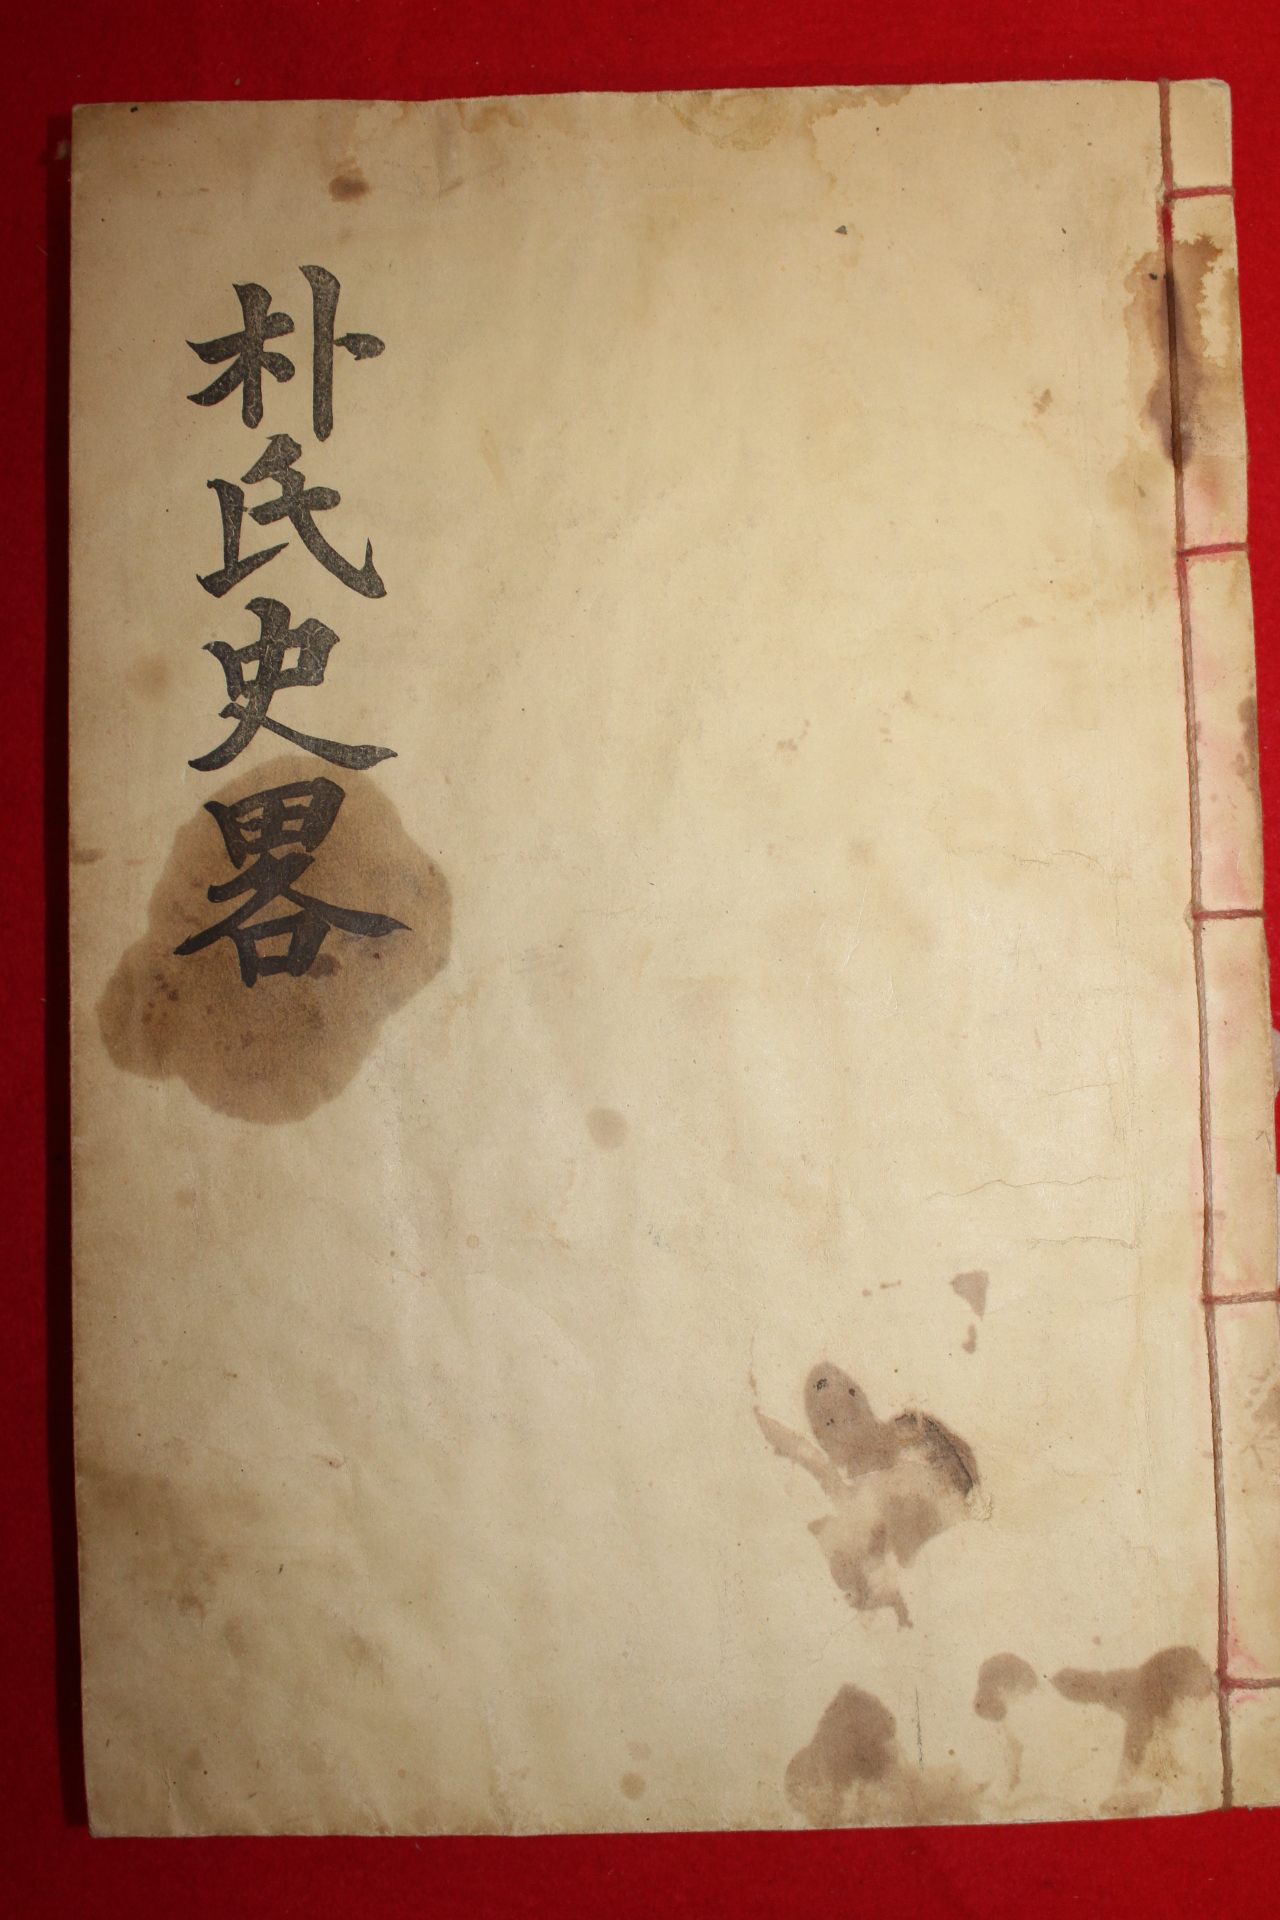 朴氏史畧